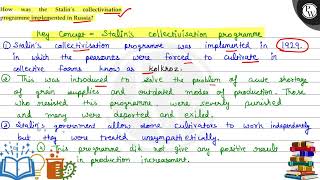 How was the Stalin's collectivisation
programme implemented in Russia?
Key Concept = Stalin's collectivisation programme
① Stalin's collectivisation programme was implemented in 1929.
in which the peasants were forced to cultivate in
collective farms known as kolkhoz.
② This was introduced to solve the problem of acute shortage
of grain supplies and outdated modes of production. Those
who resisted this programme were severely punished
and many were deported and exiled.
③ Stalin's government allow some cultivators to work independently
but they were treated unsympathetically.
④ This programme did not give any positive result
in production increasement.